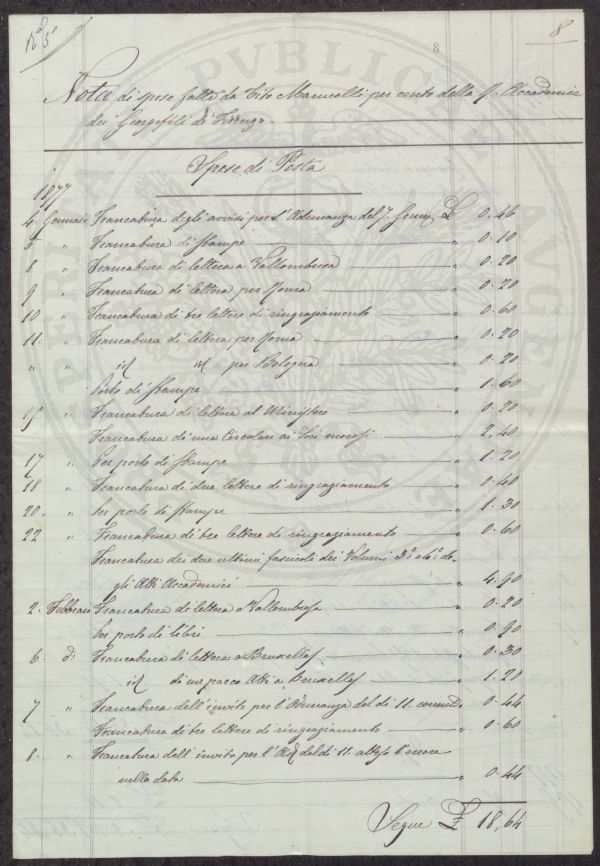 8
8
Nota di spese fatte da Tito Marucelli per conto della R. Accademia
dei Georgofili di Firenze.
Spese di Posta
1877
4 Gennaio Francatura degli avvisi per l'Adunanza del 7. Genn. £ 0.46
5 " Francatura di Stampe " 0.10
8 " Francatura di lettera a Vallombrosa " 0.20
9 " Francatura di lettera per Roma " 0.20
10 " Francatura di tre lettere di ringraziamento " 0.60
11. " Francatura di lettera per Roma " 0.20
" " id id per Bologna " 0.20
Porto di Stampe " 1.60
15 " Francatura di lettera al Ministero " 0.20
Francatura di una Circolare ai Soci morosi " 2.40
17 " Per porto di Stampe " 1.20
18 " Francatura di due lettere di ringraziamento " 0.40
20. " Per porto di Stampe " 1.30
22 " Francatura di tre lettere di ringraziamento " 0.60
Francatura dei due ultimi fascicoli dei Volumi 3.° e 4.° de-
gli Atti Accademici " 4.90
2. Febbraio Francatura di lettera a Vallombrosa " 0.20
Per porto di libri " 0.90
6. di Francatura di lettera a Bruxelles " 0.30
id di un pacco Atti a Bruxelles " 1.20
7 " Francatura dell'invito per l'Adunanza del dì 11. corrente " 0.44
Francatura di tre lettere di ringraziamento " 0.60
8. " Francatura dell'invito per l'Ad. del dì 11. atteso l'errore
nella data " 0.44
Segue £ 18,64